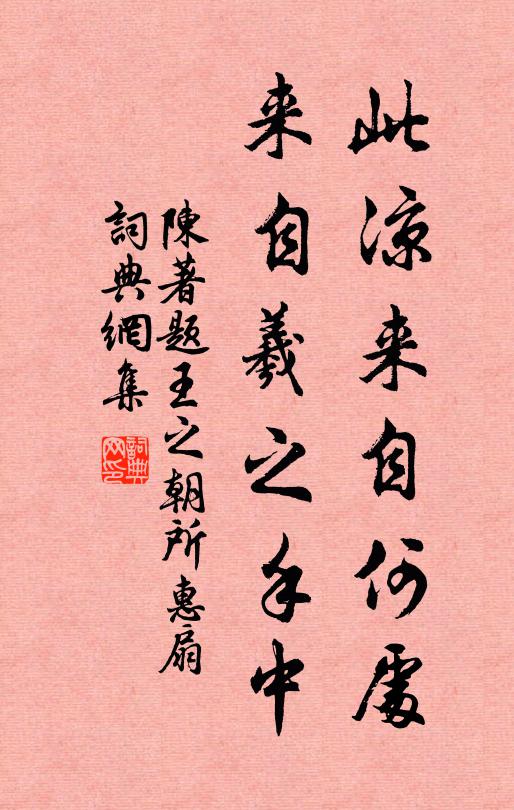 此涼来自何處
来自羲之手中
陳著題王之朝所惠扇
詞典網集
詞典网印